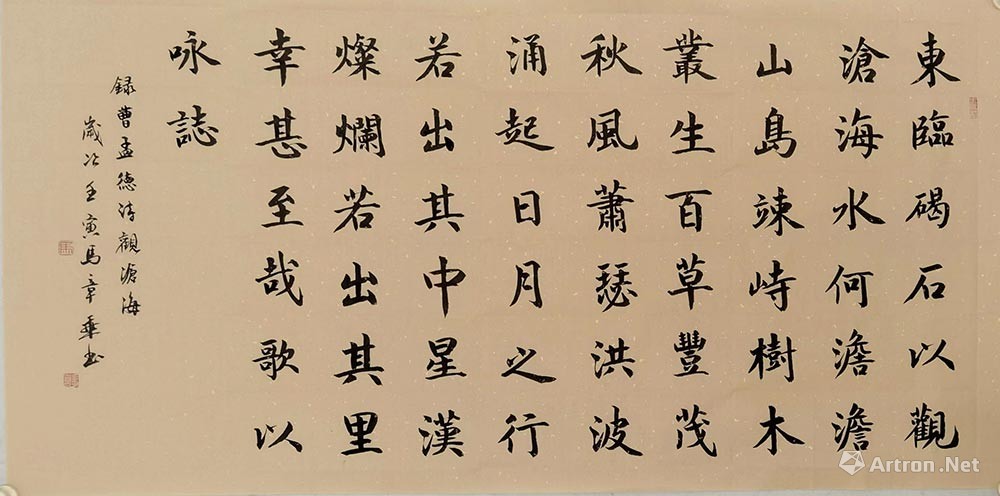 東臨碣石以觀
滄海水何澹澹
山島竦峙樹木
叢生百草豐茂
秋風蕭瑟洪波
涌起日月之行
若出其中星漢
燦爛若出其里
幸甚至哉歌以
咏誌
録曹孟德诗觀滄海
歲次壬寅馬章乘书
Artron.Net